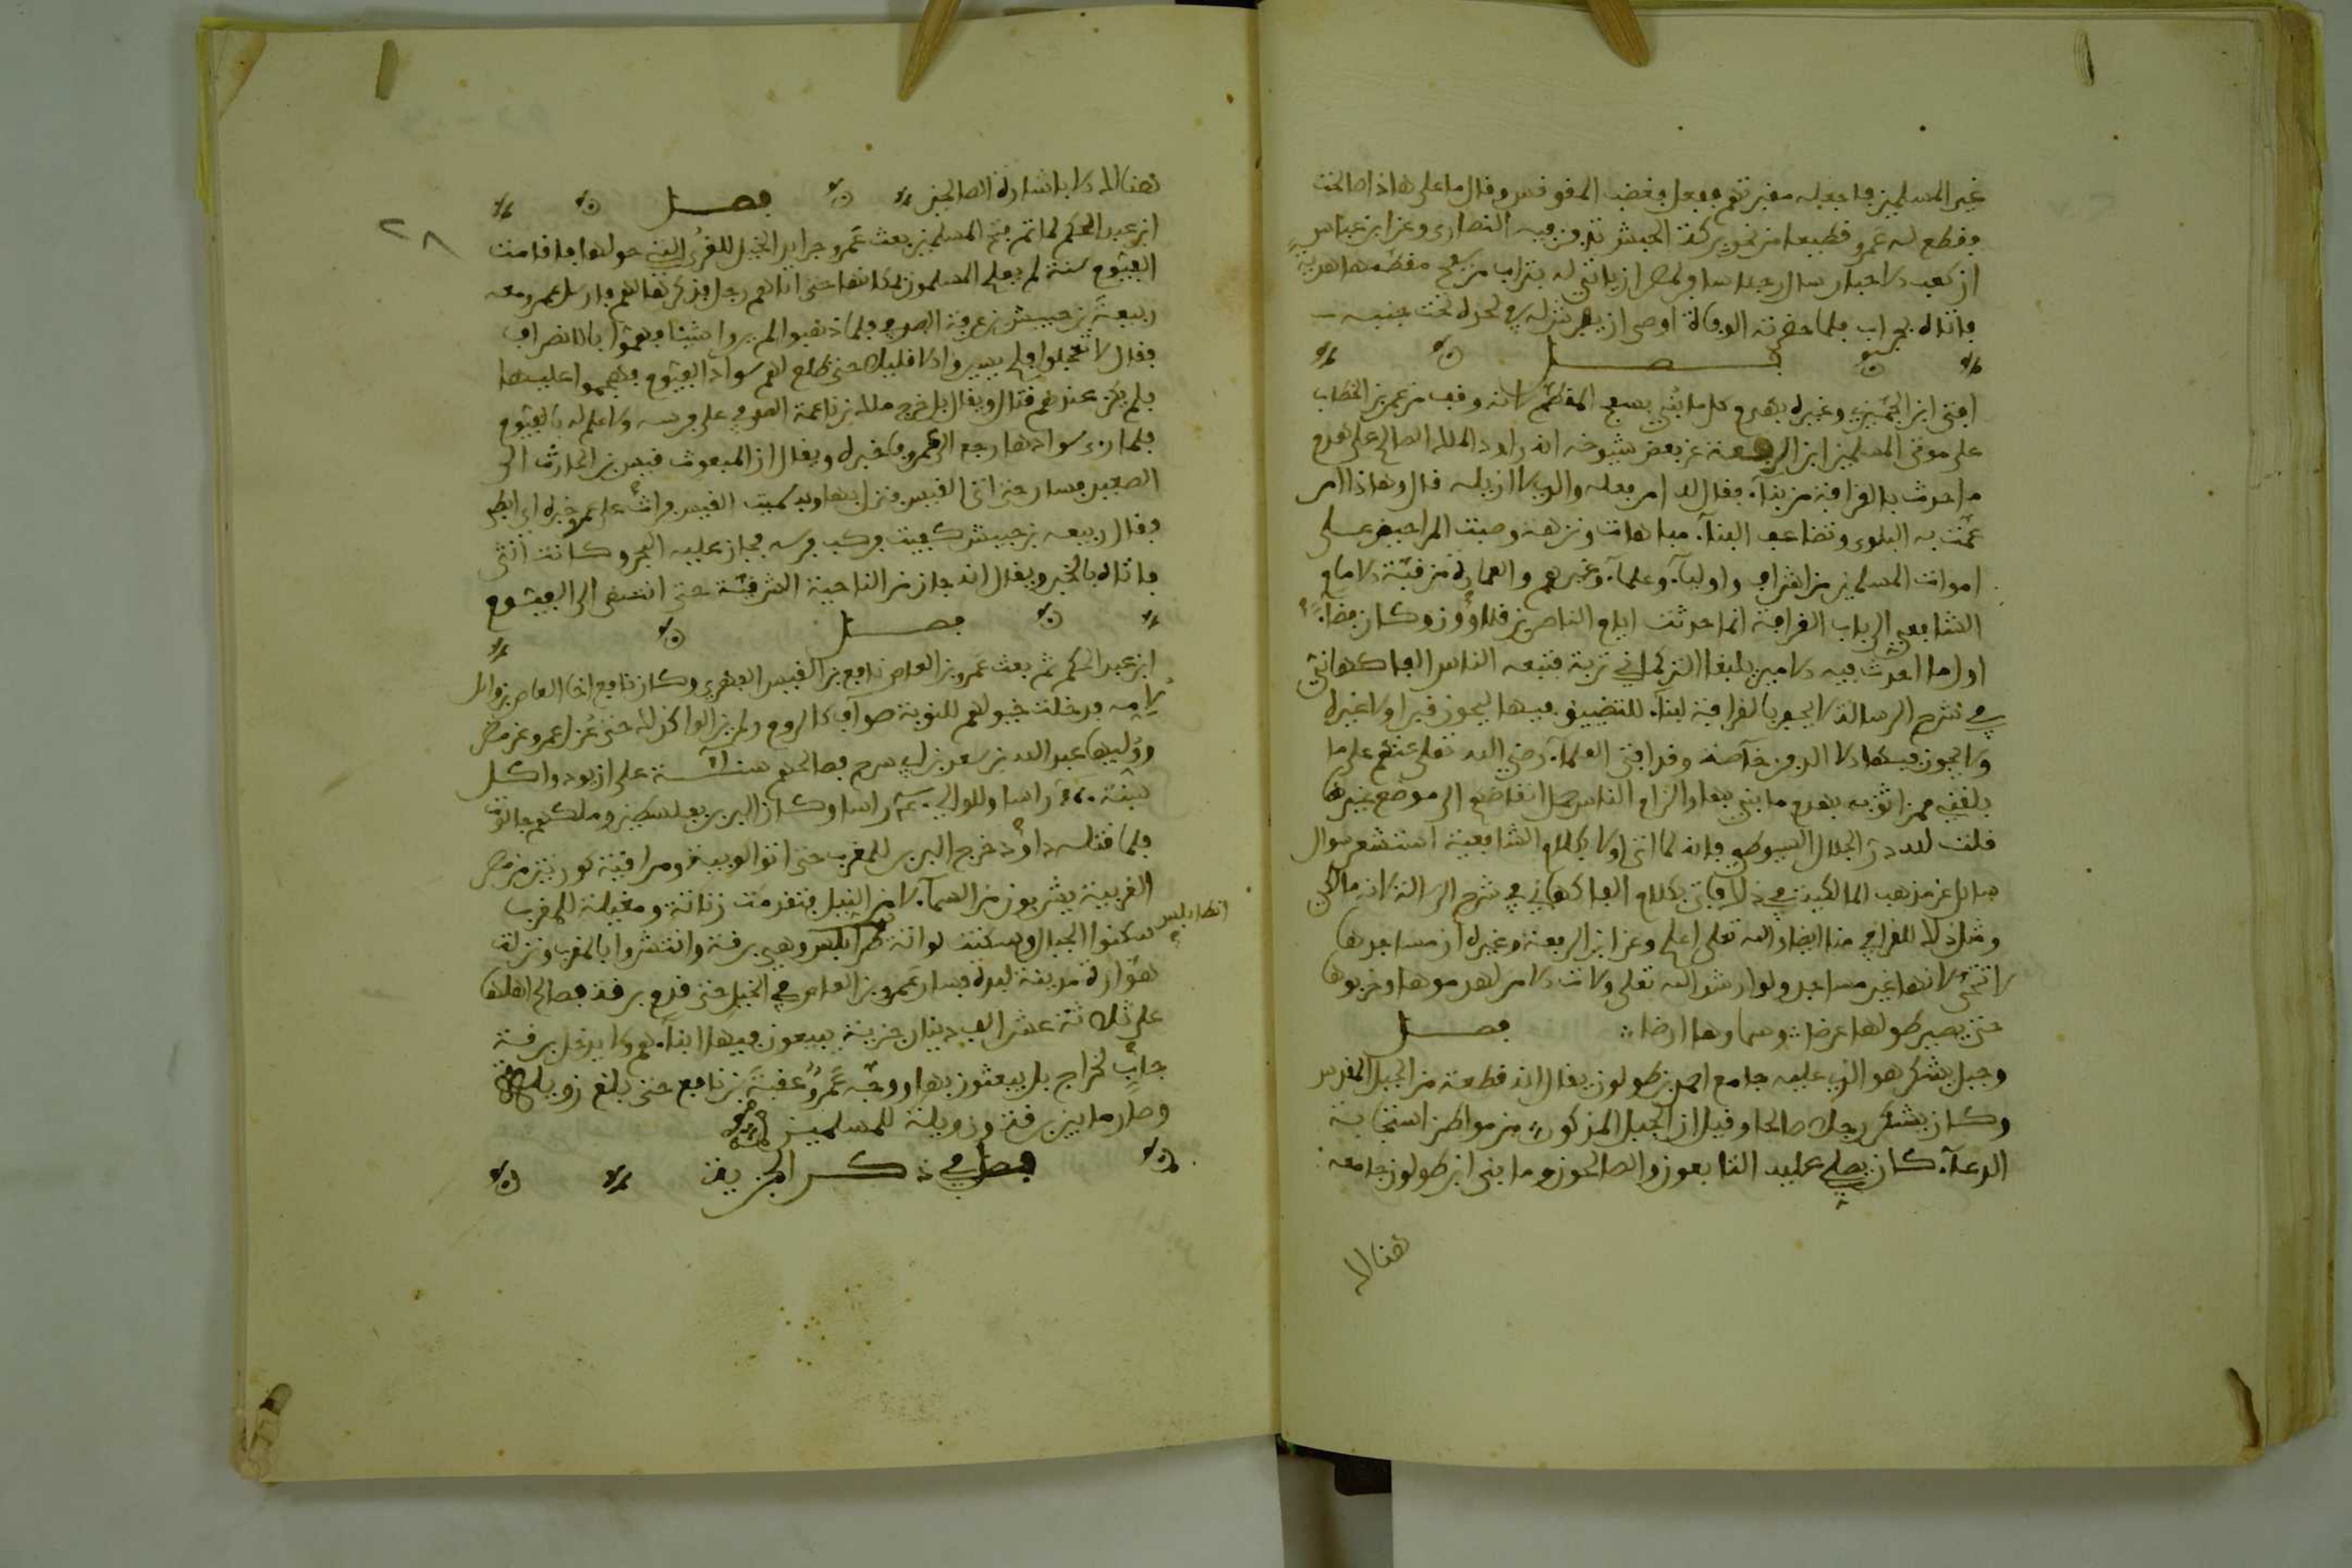 غير المسلمين فاجعله مقبرتهم ففعل فغضب المقوقس وقال ما على هاذا صالحت
فقطع له عمرو قطيعا من نحو بركة الحبش تدفن فيه النصارى وعن ابن عباس
ان كعب الاحبار سال رجلا سافر لمصر ان ياتي له بتراب من سفح مقطمها هدية
فاتاه بجراب فلما حضرته الوفاة اوصى ان ينزله في لحده تحت جنبه
فصل
افتى ابن الجميزي وغيره بهدم كل ما بني بسفح المقطم لانه وقف من عمر بن الخطاب
على موتى المسلمين ابن الرفعة عن بعض شيوخه انه راود الملك الصالح على هدم
ما احدث بالقرافة من بناء فقال له امر فعله والدي لا ازيله قال وهاذا امر
عمت به البلوى وتضاعف البناء مباهات ونزهة وصبت المراحيض على
اموات المسلمين من اشراف واولياء وعلماء وغيرهم والعمارة من قبة الامام
الشافعي الى باب القرافة انما حدثت ايام الناصر بن قلاوون وكان فضاء
اول ما احدث فيه الامير يلبغا التركماني تربة فتبعه الناس الفاكهاني
في شرح الرسالة لا يجوز بالقرافة لبناء للتضييق فيها ليحوز قبرا ولا غيره
ولا يجوز فيها الا الدفن خاصة وقد افتى العلماء رضي الله تعلى عنهم على ما
بلغني ممن اثق به بهدم ما بني بها والزام الناس حمل انقاضهم الى موضع غيرها
قلت لله در الجلال السيوطي فانه لما اتى اولا بكلام الشافعية استشعر سوال
سائل عن مذهب المالكية في ذلك فاتى بكلام الفاكهاني في شرح الرسالة لانه مالكي
ومثل ذلك للقرافي منا ايضا والله تعلى اعلم وعن ابن الرفعة وغيره ان مساجدها
لا تحيى لانها غير مساجد ولو ارشد الله تعلى ولات الامر لهدموها وخربوها
حتى يصير طولها عرضا وسماوها ارضا فصل
وجبل يشكر هو الذي عليه جامع احمد بن طولون يقال انه قطعة من الجبل المقدس
وكان يشكر رجلا صالحا وقيل ان الجبل المذكور من مواطن استجابة
الدعاء كان يصلي عليه التابعون والصالحون وما بنى ابن طولون جامعه
هنالك
هنالك الا باشارة الصالحين فصل
ابن عبد الحكم لما تم فتح المسلمين بعث عمرو جرايد الخيل للقرى التي حولها فاقامت
الفيوم سنة لم يعلم المسلمون بمكانها حتى اتاهم رجل فذكرها لهم فارسل عمرو معه
ربيعة بن حبيش بن عرفة الصدفي فلما ذهبوا لم يروا شيئا فهموا بالانصراف
فقال لا تعجلوا فلم يسيروا الا قليلا حتى طلع لهم سواد الفيوم فهجموا عليها
فلم يكن عندهم قتال ويقال بل خرج ملك بن ناعمة الصدفي على فرسه ولا علم له بالفيوم
فلما رءا سوادها رجع الى عمرو فاخبره ويقال ان المبعوث قيس بن الحارث الى
الصعيد فسار حتى اتى القيس فنزل بها وبه سميت القيس فراث على عمرو خبره
فقال ربيعة بن حبيش كفيت فركب فرسه فجاز عليه البحر وكانت انثى
فاتاه بالخبر ويقال انه جاز من الناحية الشرقية حتى انتهى الى الفيوم
فصل
ابن عبد الحكم ثم بعث عمرو بن العاص نافع بن القيس الفهري وكان نافع اخا العاص بن وائل
لامه فدخلت خيولهم للنوبة صوائف كالروم ولم يزل الوا كذلك حتى عزل عمرو عن مصر
ووليها عبد الله بن سعد بن ابي سرح فصالحهم على ان يودوا كل
سنة راسا وللوالي راسا وكان البربر بفلسطين وملكهم جالوت
فلما قتله داود خرج البربر للمغرب حتى اتوا لوبية ومراقية كورتين من مصر
الغربية يشربون من السماء لا من النيل فتقدمت زناتة ومغيلة للمغرب
سكنوا الجبال وسكنت لواتة طرابلس وهي برقة وانتشروا بالمغرب ونزلت
انطابلس
هوارة مدينة لبدة فسار عمرو بن العاص في الخيل حتى قدم برقة فصالح اهلها
على ثلاثة عشر الف دينار جزية يبيعون فيها ابناءهم ولا يدخل برقة
جابي خراج بل يبعثون بها ووجه عمرو عقبة بن نافع حتى بلغ زويلة
وصار ما بين برقة وزويلة للمسلمين
فصل في ذكر الجزية
٢٨